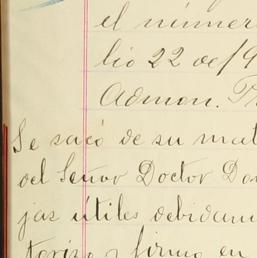 el númer
lio 22 de 19
Admon. T
Se sacó de su mat
del Señor Doctor Do
jas útiles debidam
toriza y firma en